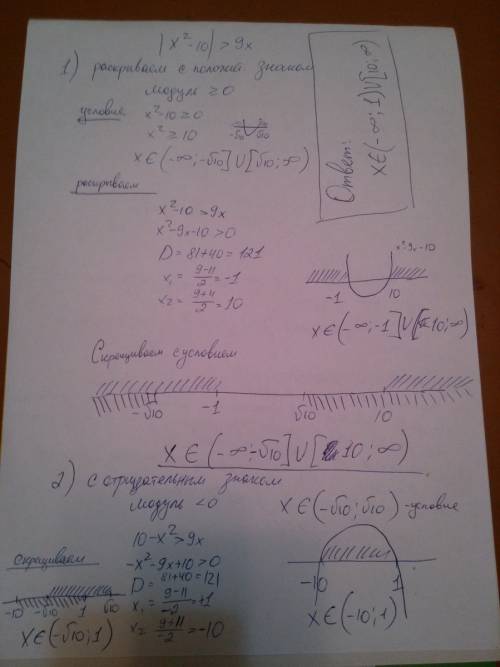 |x²-10| > 9x
1) раскриваем с положит. знаком
модуль ≥ 0
условие
x²-10 ≥ 0
x² ≥ 10
-√10 √10
x∈(-∞;-√10]∪[√10;∞)
Ответ:
x∈(-∞;1)∪[10;∞)
раскрываем
x²-10 > 9x
x²-9x-10>0
D = 81+40 = 121
x₁ = (9-11)/2 = -1
x₂ = (9+11)/2 = 10
x²-9x-10
-1 10
x∈(-∞;-1]∪[10;∞)
Скрещиваем с условием
-√10 -1 √10 10
x∈(-∞;-√10]∪[10;∞)
2) с отрицательным знаком
модуль <0
x∈(-√10;√10) -условие
10-x²>9x
-x²-9x+10>0
D = 81+40=121
x₁ = (9-11)/-2 = +1
x₂ = (9+11)/-2 = -10
скрещиваем
-10 -√10 1 √10
x∈(-√10;1)
-10 1
x∈(-10;1)